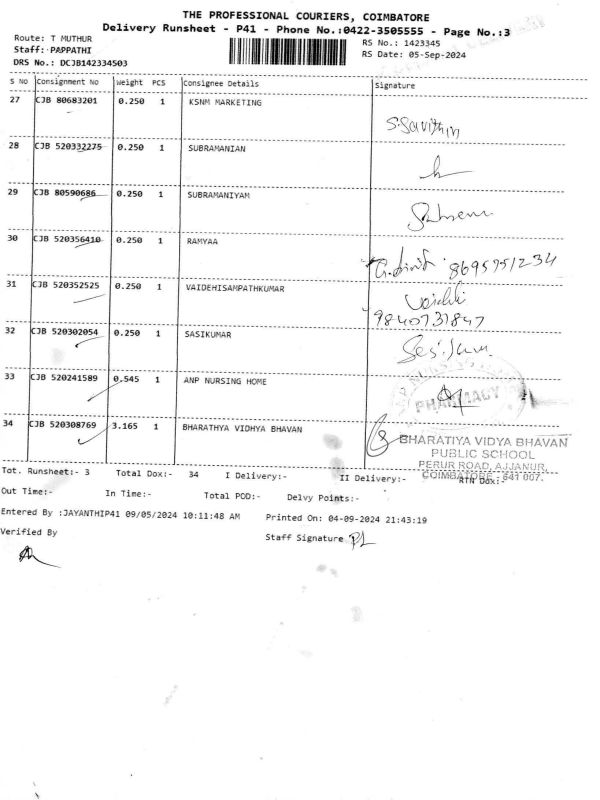 THE PROFESSIONAL COURIERS, COIMBATORE
Delivery Runsheet - P41 - Phone No.:0422-3505555 - Page No.:3
Route: T MUTHUR
RS No.: 1423345
Staff: PAPPATHI
RS Date: 05-Sep-2024
DRS No.: DCJB142334503
S No Consignment No Weight PCS Consignee Details Signature
27 CJB 80683201 0.250 1 KSNM MARKETING
S.Savithiri
28 CJB 520332275 0.250 1 SUBRAMANIAN
29 CJB 80590686 0.250 1 SUBRAMANIYAM
30 CJB 520356410 0.250 1 RAMYAA
8695951234
31 CJB 520352525 0.250 1 VAIDEHISAMPATHKUMAR
9840737847
32 CJB 520302054 0.250 1 SASIKUMAR
33 CJB 520241589 0.545 1 ANP NURSING HOME
PHARMACY
34 CJB 520308769 3.165 1 BHARATHYA VIDHYA BHAVAN
BHARATIYA VIDYA BHAVAN
PUBLIC SCHOOL
PERUR ROAD, AJJANUR,
COIMBATORE - 641 007.
Tot. Runsheet:- 3 Total Dox:- 34 I Delivery:- II Delivery:- RTN Dox:-
Out Time:- In Time:- Total POD:- Delvy Points:-
Entered By :JAYANTHIP41 09/05/2024 10:11:48 AM Printed On: 04-09-2024 21:43:19
Verified By Staff Signature